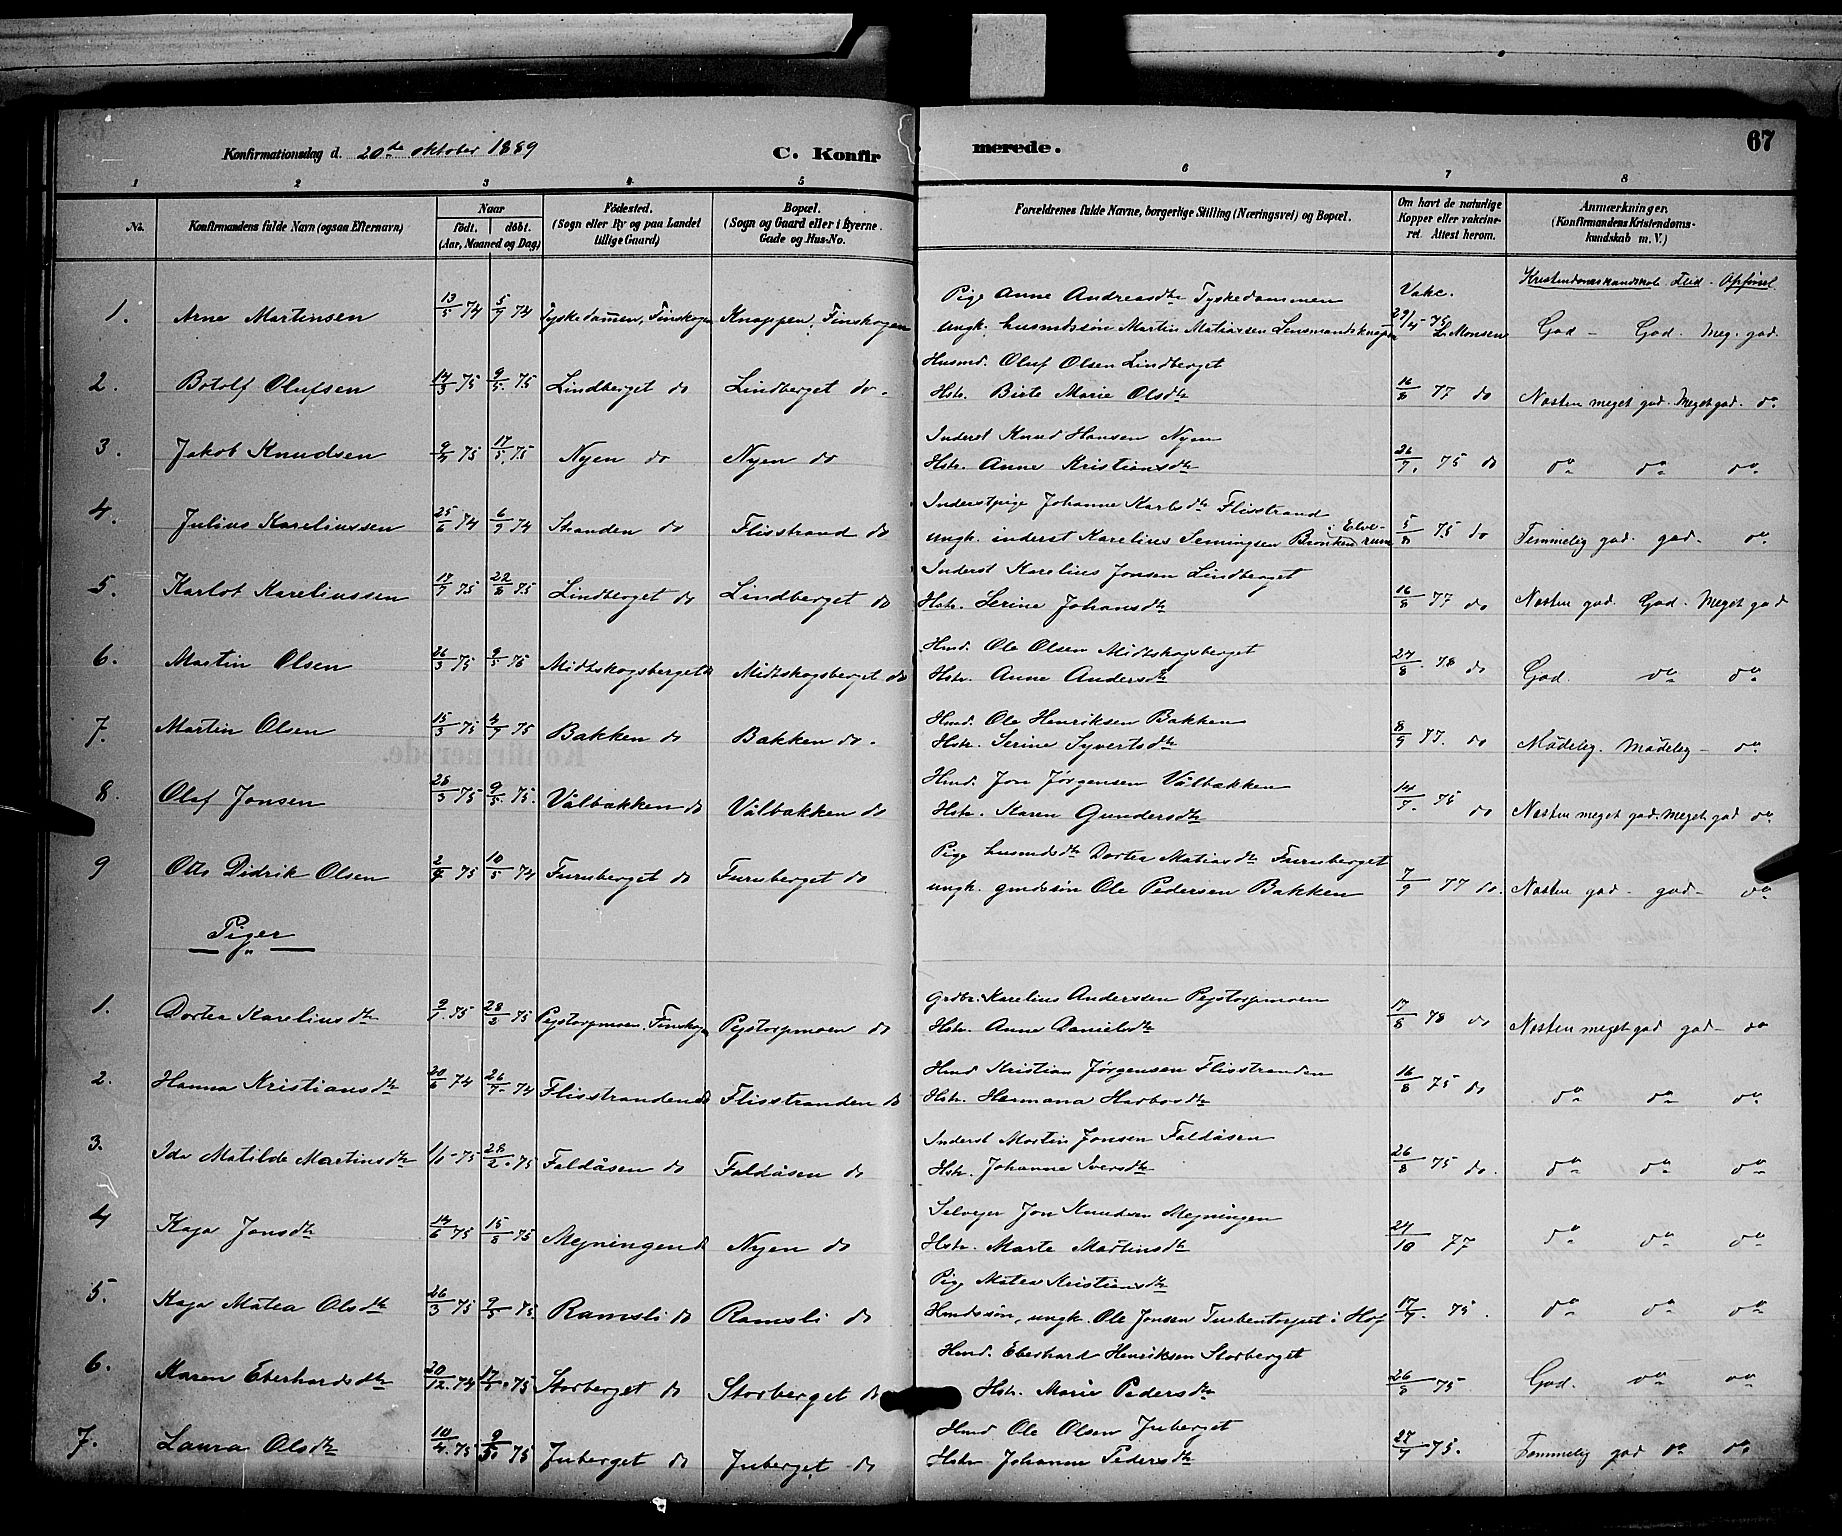 67
Konfirmationsdag d. 20de oktober 1889 C. Konfir merede.
1 2 3 4 5 6 7 8
No. Konfirmandens fulde Navn (ogsaa Efternavn) Naar født. døbt. (Aar, Maaned og Dag) Fødested. (Sogn eller By og paa Landet tillige Gaard) Bopæl. (Sogn og Gaard eller i Byerne Gade og Hus-No. Forældrenes fulde Navne, borgerlige Stilling (Næringsvei) og Bopæl. Om havt de naturlige Kopper eller vakcineret. Attest herom. Anmærkninger. (Konfirmandens Kristendomskundskab m. V.)
Kristendomskundskab Flid - Opførsel
Pige Anne Andreasdtr Tyskedammen Vakc.
1. Arne Martinsen 13/5 74 5/7 74 Tyskedammen, Finskogen Knappen, Finskogen
ungk. husmdssøn Martin Matiassen Lensmandsknappen 29/4 - 75 L. Monsen God - God. Meg. god.
Husmd. Oluf Olsen Lindberget
2. Botolf Olufsen 14/3 75 9/5 75 Lindberget do Lindberget do.
Hstr. Birte Marie Olsdtr 16/8 77 do Næsten meget god. Meget god. do
Inderst Knud Hansen Nyen
3. Jakob Knudsen 9/4 75 17/5 75 Nyen do Nyen do
Hstr. Anne Kristiansdtr 26/7. 75 do do do do
Inderstpige Johanne Karlsdtr Flisstrand
4. Julius Kareliussen 25/6 74 6/9 74 Stranden do Flisstrand do
ungk. inderst Karelius Semingsen Bronken i Elverum 5/8 75 do Temmelig god. god. do
Inderst Karelius Jonsen Lindberget
5. Karlot Kareliussen 17/7 75 22/8 75 Lindberget do Lindberget do
Hstr. Serine Johansdtr 16/8 77 do Næsten god. God. Meget god
Hmd. Ole Olsen Midtskogsberget
6. Martin Olsen 26/3 75 9/5 75 Midtskogsberget do Midtskogsberget do
Hstr. Anne Andersdtr 27/8. 78 do God. do do
Hmd. Ole Henriksen Bakken
7. Martin Olsen 15/3 75 4/7 75 Bakken do Bakken do.
Hstr. Serine Syvertsdtr 8/9 77. do Mådelig. Mådelig - do
Hmd. Jon Jørgensen Vålbakken
8. Olaf Jonsen 28/3 75 9/5 75. Vålbakken do Vålbakken do
Hstr. Karen Gundersdtr 14/7. 75 do Næsten meget god. Meget god do
Pige husmdsdtr Dortea Matiasdtr Furuberget
9 Otto Didrik Olsen 2/4 75 10/5 74 Furuberget do Furuberget do
ungk. gmdssøn Ole Pedersen Bakken 7/9 77 do. Næsten god - god - do
Piger
Grdbr. Karelius Anderssen Peistorpmoen
1. Dortea Kareliusdtr 9/1. 75 28/2 75 Peistorpmoen, Finskogen Peistorpmoen do
Hstr. Anne Danielsdtr 17/8 78 do Næsten meget god god - do
Hmd Kristian Jørgensen Flisstranden
2. Hanna Kristiansdtr 20/6 74 26/7. 74 Flisstranden do Flisstranden do
Hstr. Hermana Harbosdtr 16/8 75 do do do do
Inderst Martin Jonsen Faldåsen
3. Ida Matilde Martinsdtr 1/1 - 75 28/2. 75 Faldåsen do Faldåsen do
Hstr. Johanne Iversdtr 26/8 75 do. do do do
Selveier Jon Knudsen Mejningen
4 Kaja Jonsdtr 14/6 75 15/8 75 Mejningen do Nyen do
Hstr. Marte Martinsdtr 24/10 77 do do do
Pige Matea Kristiansdtr
5. Kaja Matea Olsdtr 26/3 75 9/5 75. Ramsli do Ramsli do
Hmdssøn, ungk. Ole Jonsen Turbentorpet i Hof 17/7. 75. do do do
Hmd. Eberhard Henriksen Storberget
6. Karen Eberhardsdtr 20/12. 74 17/5. 75 Storberget do Storberget do
Hstr. Marie Pedersdtr 26/8 75 God. do do
Hmd Ole Olsen Juberget
7. Laura Olsdtr 10/4. 75 9/5 75 Juberget do Juberget do
Hstr Johanne Pedersdtr 27/7 75. Temmelig god do do